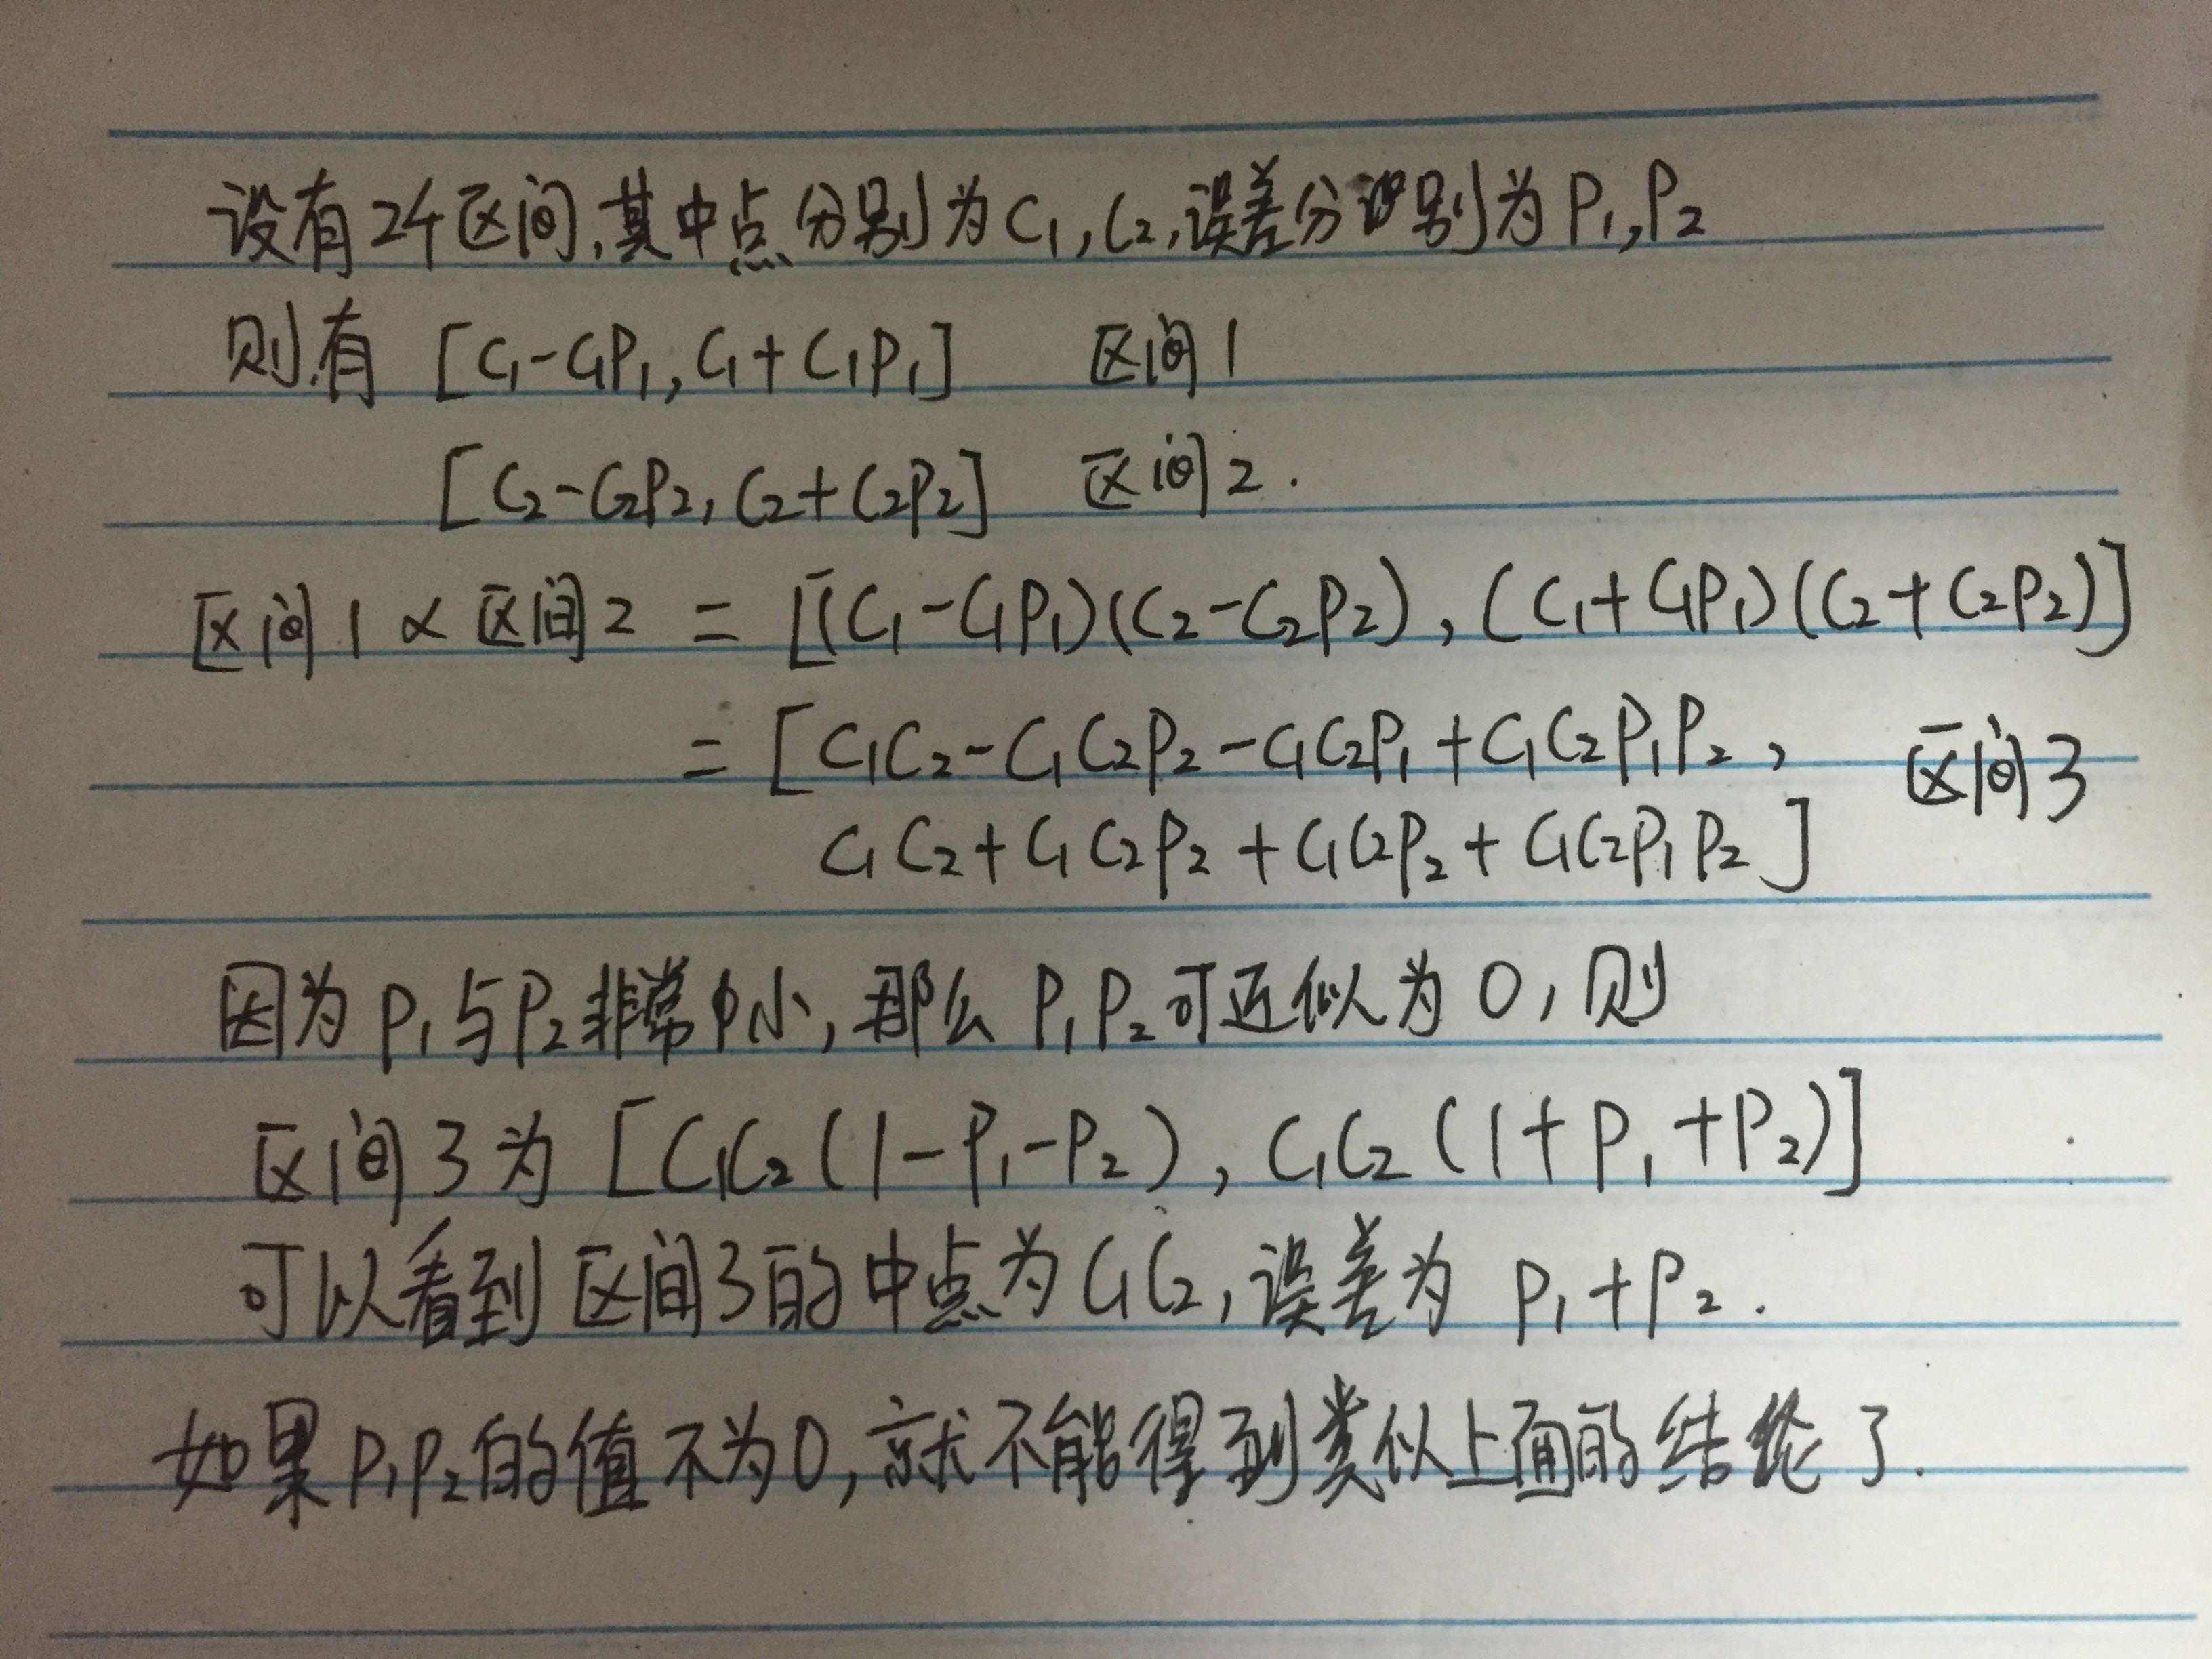 设有2个区间,其中点分别为C₁,C₂,误差分别为P₁,P₂
则有 [C₁-C₁P₁,C₁+C₁P₁] 区间1
[C₂-C₂P₂,C₂+C₂P₂] 区间2.
区间1×区间2 = [(C₁-C₁P₁)(C₂-C₂P₂),(C₁+C₁P₁)(C₂+C₂P₂)]
= [C₁C₂-C₁C₂P₂-C₁C₂P₁+C₁C₂P₁P₂, 区间3
C₁C₂+C₁C₂P₂+C₁C₂P₂+C₁C₂P₁P₂]
因为P₁与P₂非常小,那么P₁P₂可近似为0,则
区间3为[C₁C₂(1-P₁-P₂),C₁C₂(1+P₁+P₂)]
可以看到区间3的中点为C₁C₂,误差为 P₁+P₂.
如果P₁P₂的值不为0,就不能得到类似上面的结论了.